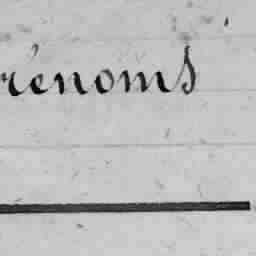 rénoms